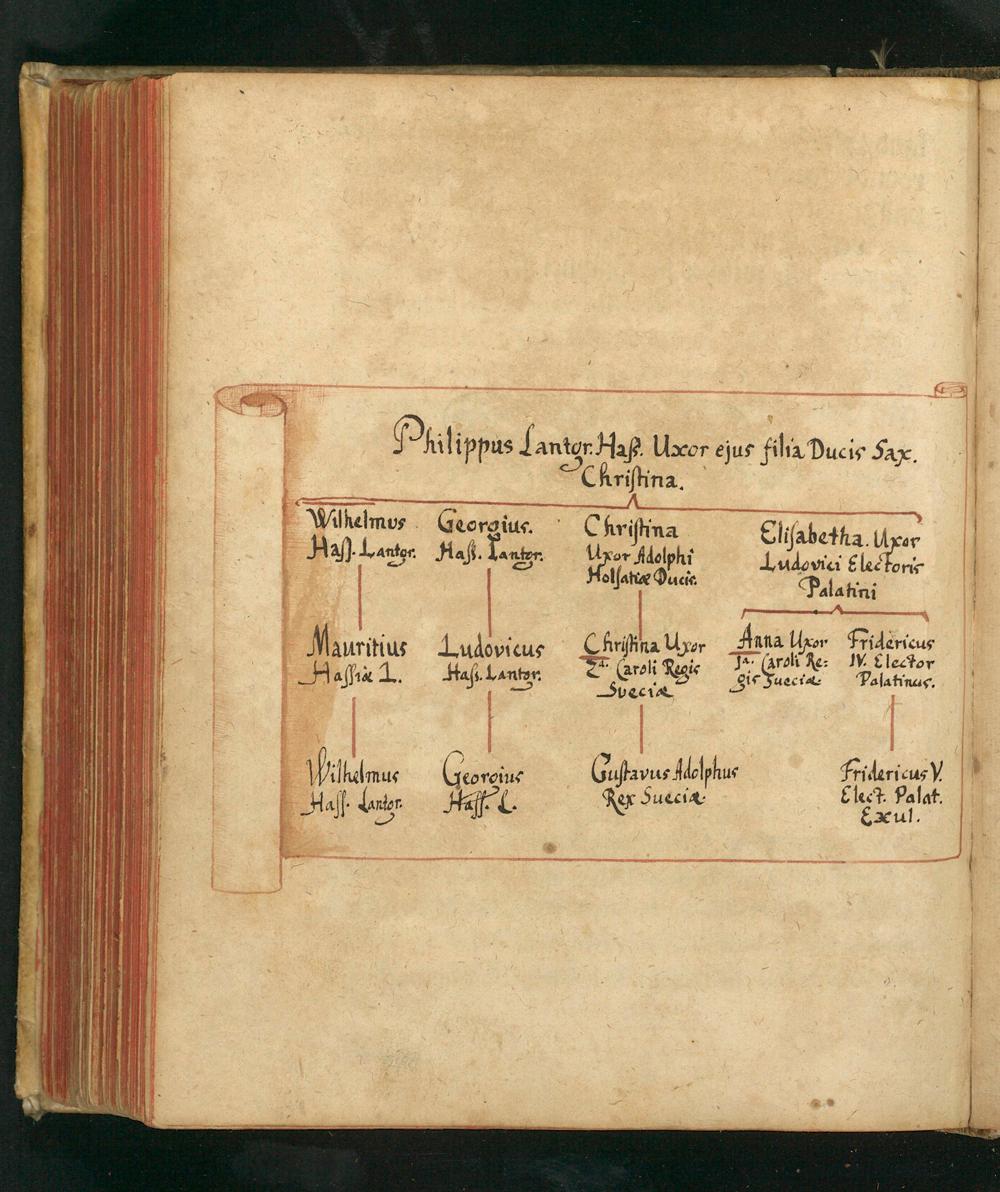 Philippus Lantgr. Haß. Uxor ejus filia Ducis Sax.
Christina.
Wilhelmus
Hass. Lantgr.
Georgius.
Hass. Lantgr.
Christina
Uxor Adolphi
Holsatiæ Ducis.
Elisabetha. Uxor
Ludovici Electoris
Palatini
Mauritius
Hassiæ L.
Ludovicus
Hass. Lantgr.
Christina Uxor
2da. Caroli Regis
Sveciæ
Anna Uxor
1a. Caroli Re:
gis Sueciæ
Fridericus
IV. Elector
Palatinus.
Wilhelmus
Hass. Lantgr.
Georgius
Hass. L.
Gustavus Adolphus
Rex Sueciæ
Fridericus V.
Elect. Palat.
Exul.